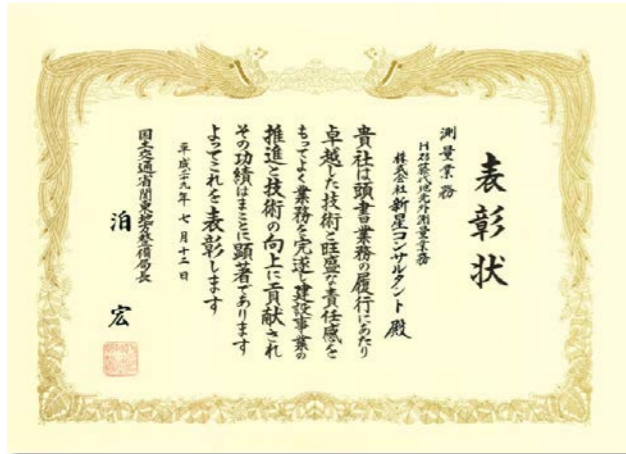 表彰状
測量業務
H28藤代地先外測量業務
株式会社新星コンサルタント殿
貴社は頭書業務の履行にあたり
卓越した技術と旺盛な責任感を
もってよく業務を完遂し建設事業の
推進と技術の向上に貢献され
その功績はまことに顕著であります
よってこれを表彰します
平成二十九年七月十二日
国土交通省関東地方整備局長
泊宏